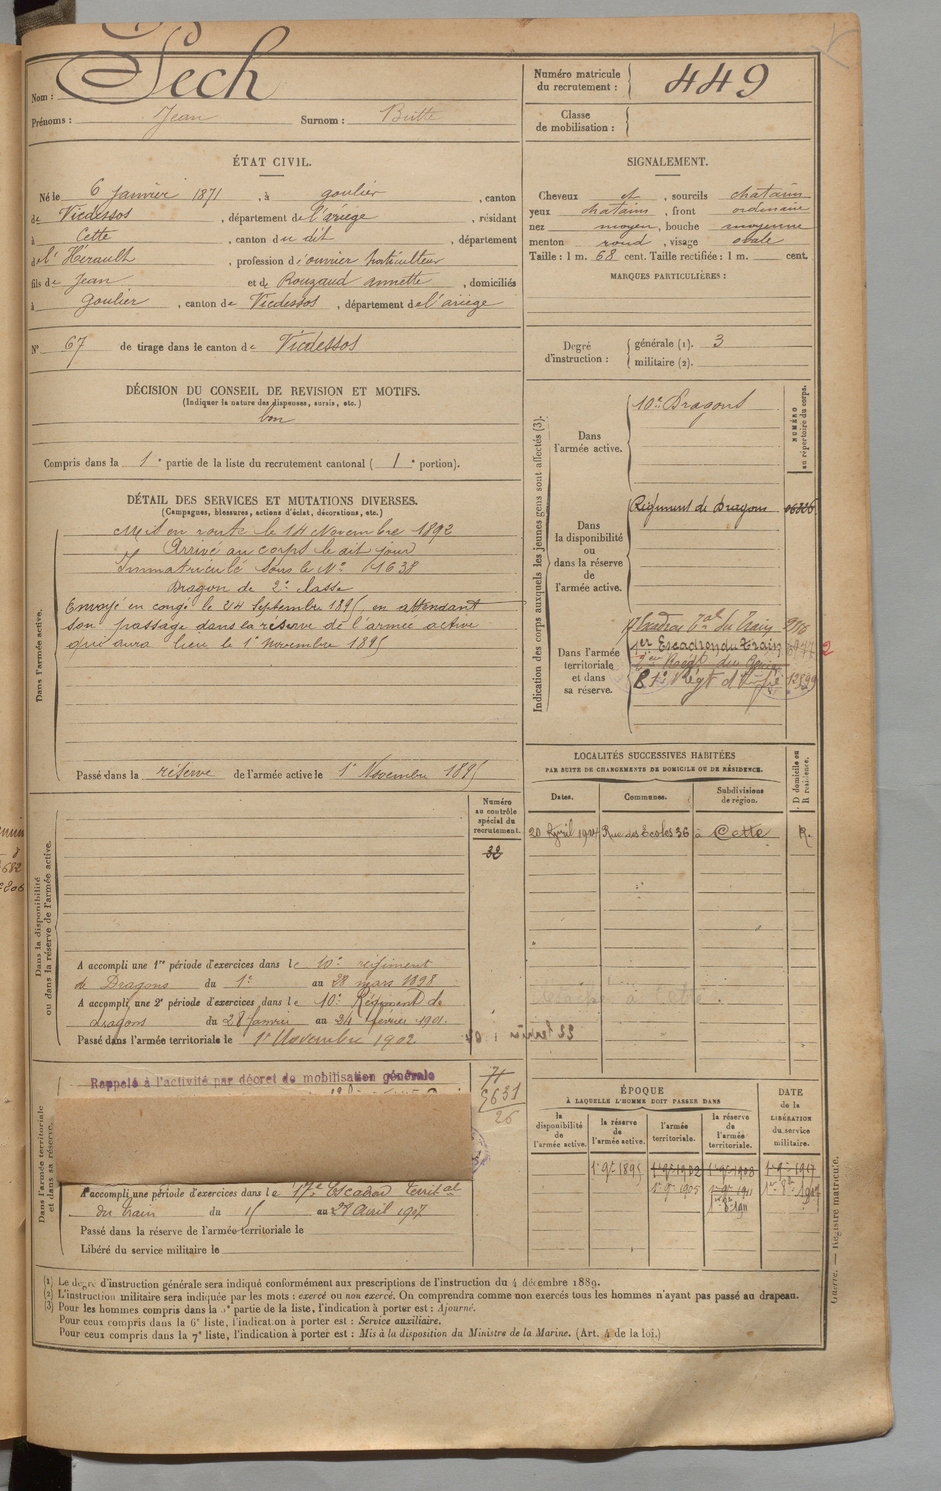 Nom : Pech
Prénoms : Jean Surnom : Butte
Numéro matricule du recrutement : 449
Classe de mobilisation :
ÉTAT CIVIL.
Né le 6 Janvier 1871, à goulier, canton
de Vicdessos, département de l'ariège, résidant
à Cette, canton du dit, département
de l'Hérault, profession d'ouvrier horticulteur
fils de Jean et de Rouzaud annette, domiciliés
à Goulier, canton de Vicdessos, département de l'ariège
N° 67 de tirage dans le canton de Vicdessos
SIGNALEMENT.
Cheveux et, sourcils chatains
yeux chatains, front ordinaire
nez moyen, bouche moyenne
menton rond, visage ovale
Taille : 1 m. 68 cent. Taille rectifiée : 1 m. cent.
MARQUES PARTICULIÈRES :
Degré d'instruction : générale (1). 3
militaire (2).
DÉCISION DU CONSEIL DE REVISION ET MOTIFS.
(Indiquer la nature des dispenses, sursis, etc.)
bon
Compris dans la 1e partie de la liste du recrutement cantonal ( 1e portion).
DÉTAIL DES SERVICES ET MUTATIONS DIVERSES.
(Campagnes, blessures, actions d'éclat, décorations, etc.)
Dans l'armée active.
Mis en route le 14 Novembre 1892
Arrivé au corps le dit jour
Immatriculé sous le N° 1638
Dragon de 2e classe
Envoyé en congé le 24 Septembre 1895, en attendant
son passage dans la réserve de l'armée active
qui aura lieu le 1er Novembre 1895
Passé dans la réserve de l'armée active le 1er Novembre 1895
Indication des corps auxquels les jeunes gens sont affectés (3).
NUMÉRO au répertoire du corps.
Dans l'armée active.
10e Dragons
Dans la disponibilité ou dans la réserve de l'armée active.
Régiment de Dragons
Dans l'armée territoriale et dans sa réserve.
17 Escadron Tal du Train 916
1er Escadron du Train
81e Régt d'Infie
LOCALITÉS SUCCESSIVES HABITÉES
PAR SUITE DE CHANGEMENTS DE DOMICILE OU DE RÉSIDENCE.
Dates. Communes. Subdivisions de région. D domicile ou R résidence.
20 Avril 1904 Rue des Ecoles 36 à Cette R.
Numéro au contrôle spécial du recrutement.
32
Dans la disponibilité ou dans la réserve de l'armée active.
A accompli une 1re période d'exercices dans le 10e régiment
de Dragons du 1er au 28 mars 1898
A accompli une 2e période d'exercices dans le 10e Régiment de
dragons du 28 Janvier au 24 février 1901.
Passé dans l'armée territoriale le 1er Novembre 1902
Dans l'armée territoriale et dans sa réserve.
Rappelé à l'activité par décret de mobilisation générale
71
5631
26
A accompli une période d'exercices dans le 17e Escadron Territal
du train du 15 au 29 Avril 1907.
Passé dans la réserve de l'armée territoriale le
Libéré du service militaire le
ÉPOQUE
À LAQUELLE L'HOMME DOIT PASSER DANS
la disponibilité de l'armée active. la réserve de l'armée active. l'armée territoriale. la réserve de l'armée territoriale. DATE de la LIBÉRATION du service militaire.
1er 9bre 1895 1er 9bre 1902 1er 9bre 1908 1er 9bre 1917
1er 9bre 1905 1er 9bre 1911
1er 8bre 1911
(1) Le degré d'instruction générale sera indiqué conformément aux prescriptions de l'instruction du 4 décembre 1889.
(2) L'instruction militaire sera indiquée par les mots : exercé ou non exercé. On comprendra comme non exercés tous les hommes n'ayant pas passé au drapeau.
(3) Pour les hommes compris dans la 5e partie de la liste, l'indication à porter est : Ajourné.
Pour ceux compris dans la 6e liste, l'indication à porter est : Service auxiliaire.
Pour ceux compris dans la 7e liste, l'indication à porter est : Mis à la disposition du Ministre de la Marine. (Art. 4 de la loi.)
Guerre. — Registre matricule.